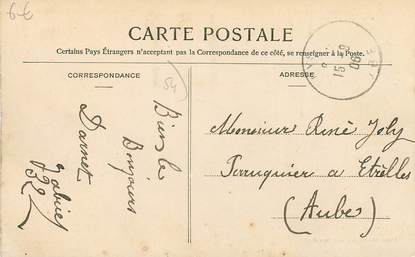 6-€
CARTE POSTALE
Certains Pays Étrangers n'acceptant pas la Correspondance de ce côté, se renseigner à la Poste.
CORRESPONDANCE
ADRESSE
54
Bien le
Bonjour
Darnet
Monsieur René Joly
Perruquier a Etrelles
(Aube)
15
06